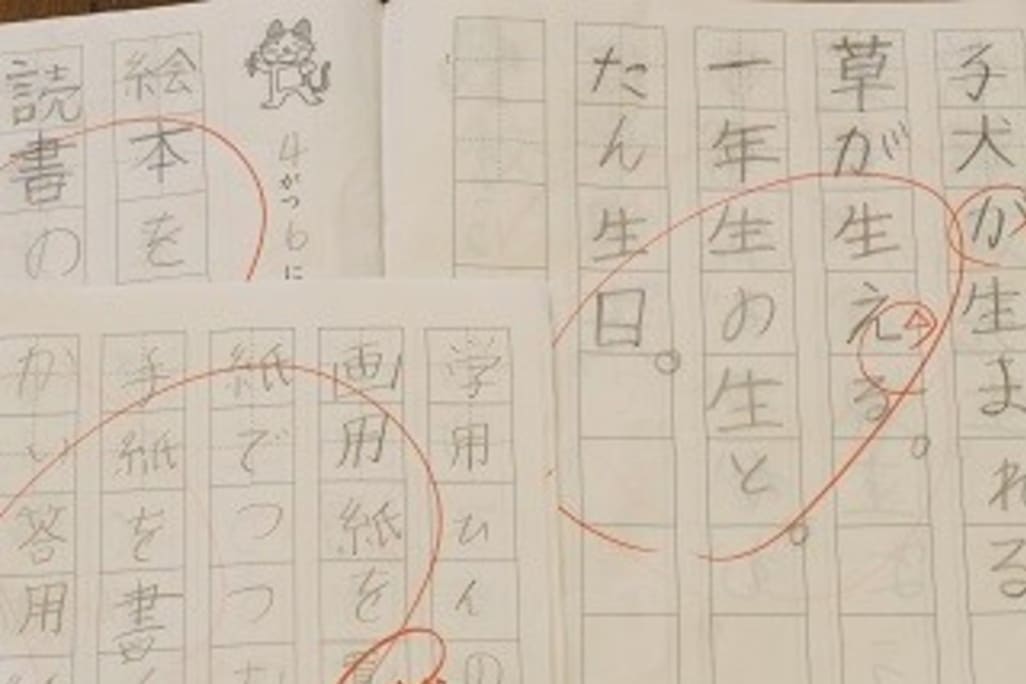 子犬が生まれる
草が生える。
一年生の生と。
たん生日。
4がつ6に
絵本を
読書の
学用ひんの
画用紙を
紙でつつ
手紙を書
かい答用